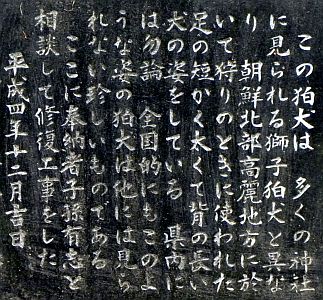 この狛犬は 多くの神社
に見られる獅子狛犬と異な
り 朝鮮北部高麗地方に於
いて狩りのときに使われた
足の短かく太くて背の長い
犬の姿をしている 県内に
は勿論 全国的にもこのよ
うな姿の狛犬は他には見ら
れない珍しいものである
ここに奉納者子孫有志と
相談して修復工事をした
平成四年十二月吉日